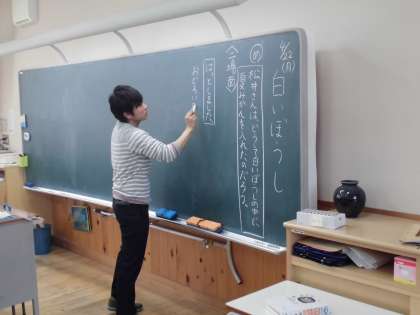 (月)
白いぼうし
め
松井さんは、どうして白いぼうしの中に、
夏みかんを入れたのだろう。
はっとしました。
おどろい